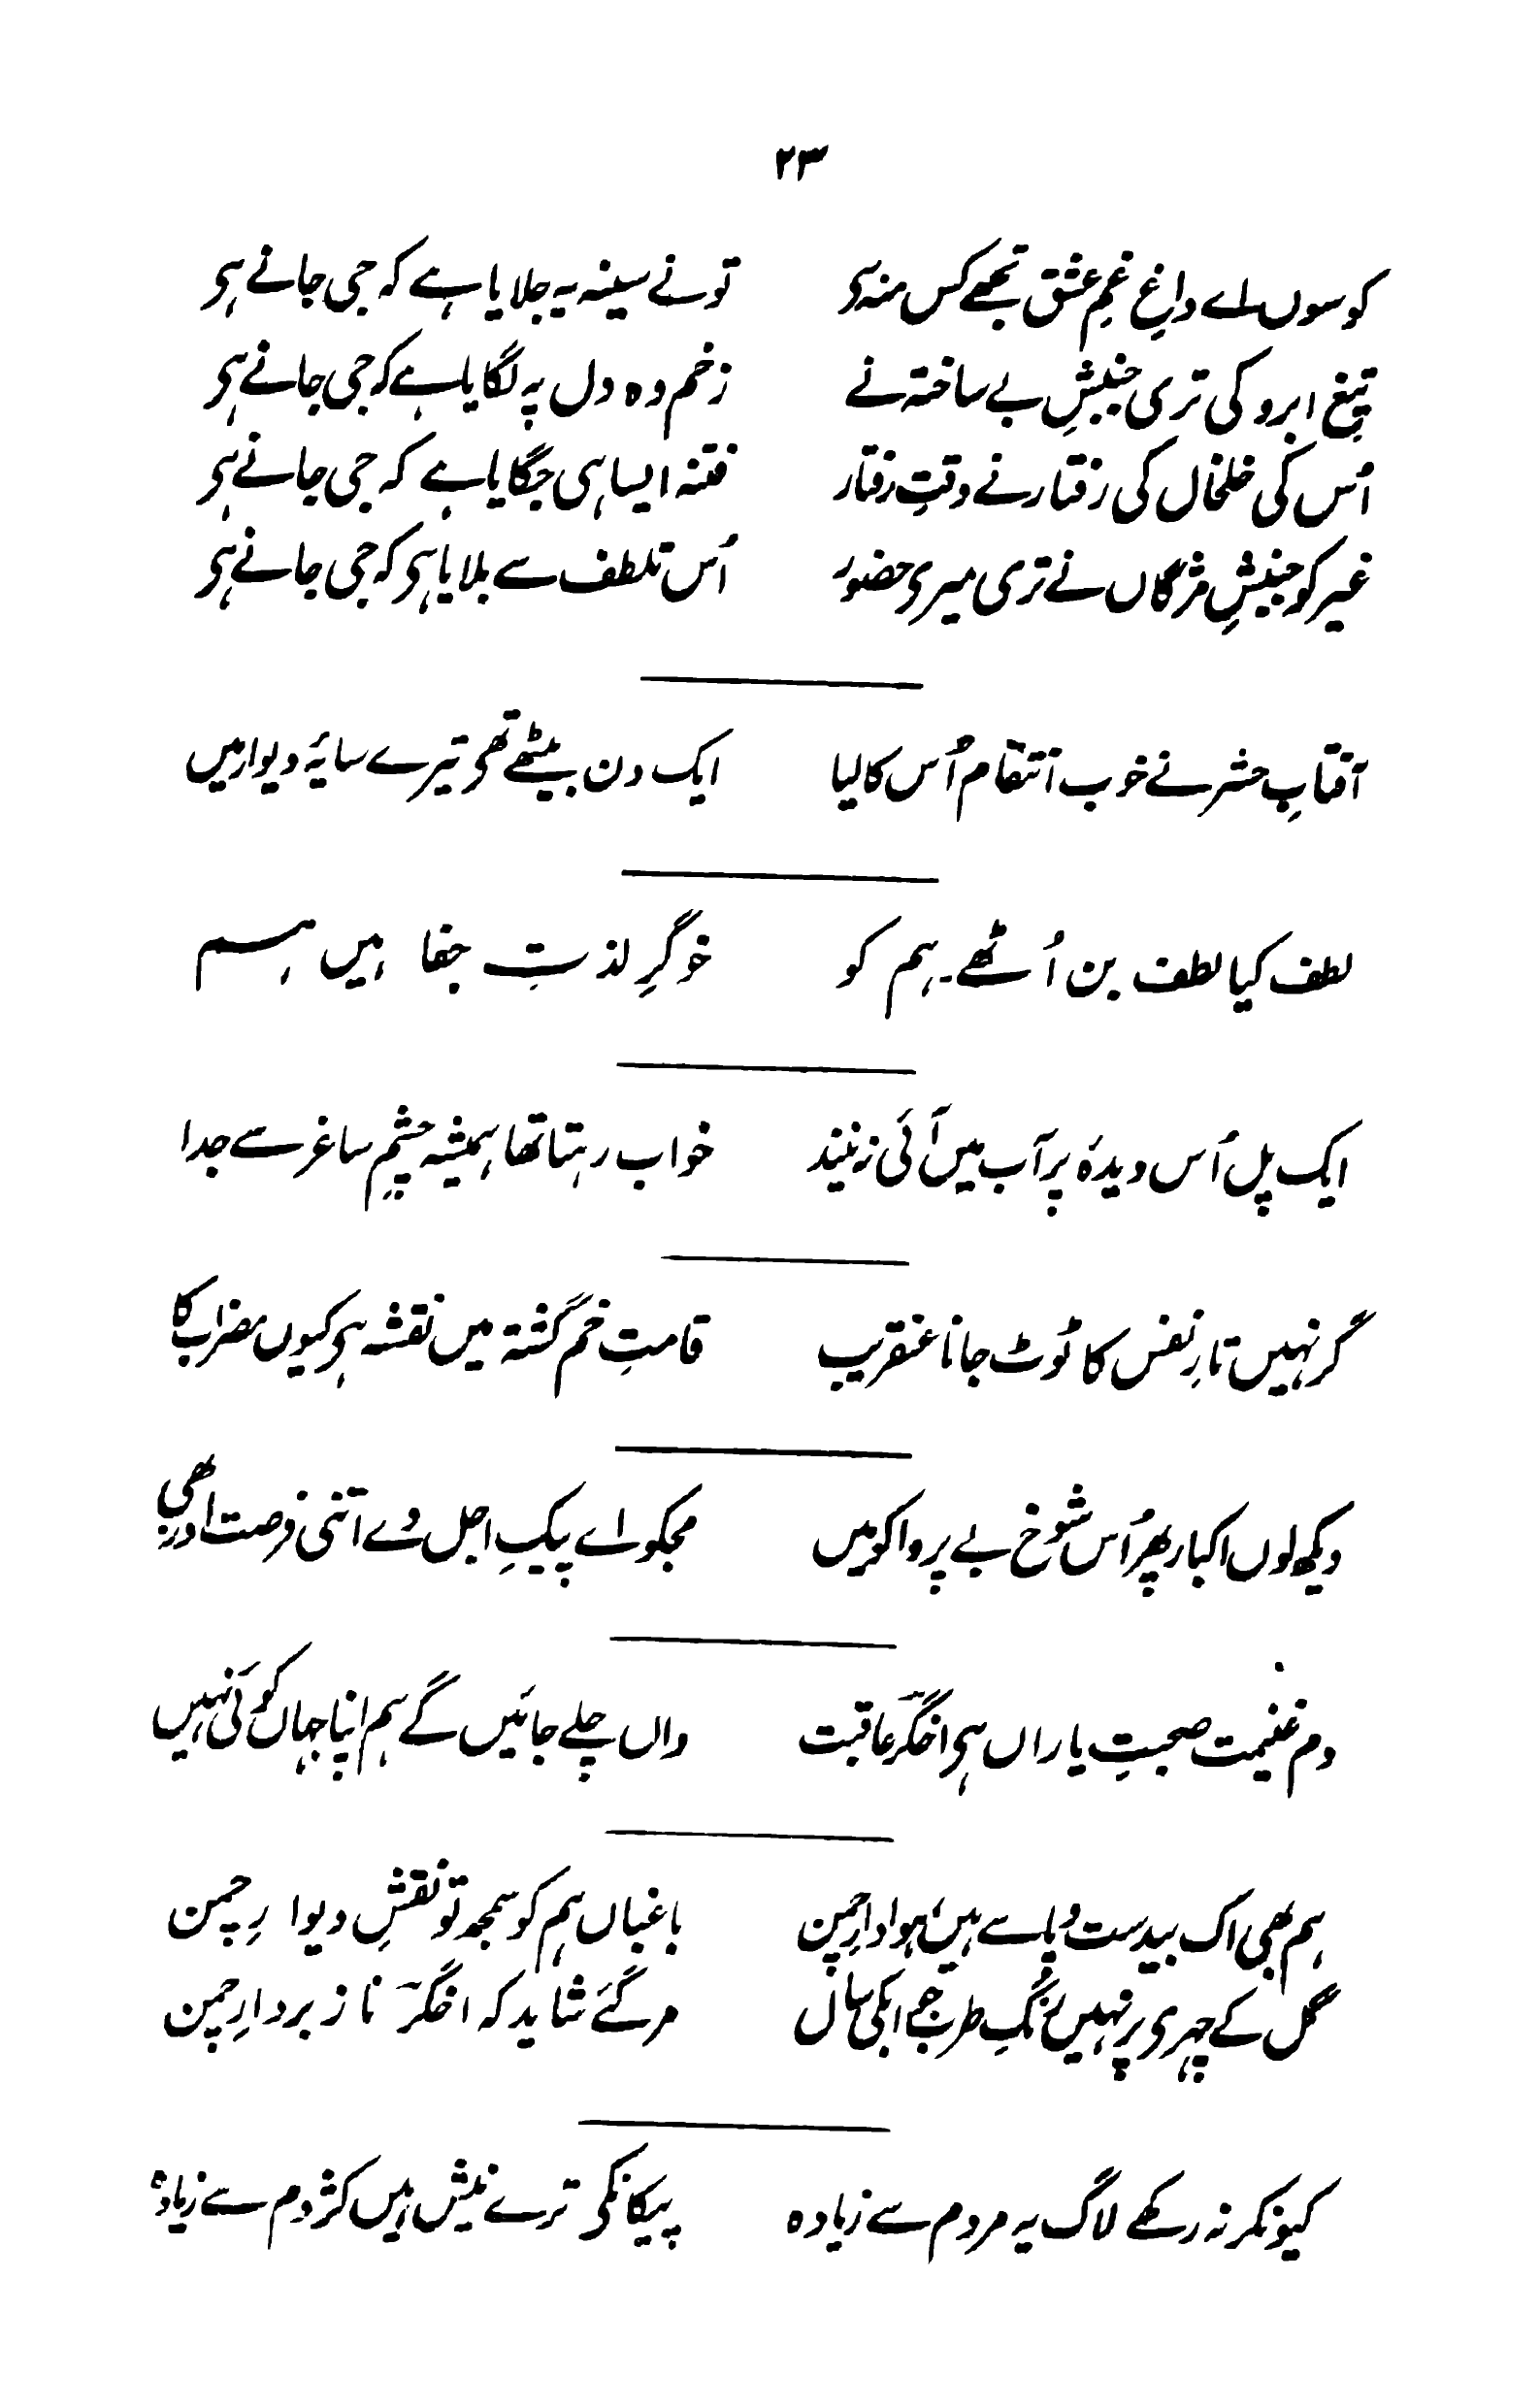 ۲۳
کوسوں اے داغِ غمِ عشق تجھے کس منہ سی تو نے سینہ یہ جلایا ہے کہ جی جانے ہی
تیغِ ابرو کی تری جنبشِ بے ساختہ نے زخم وہ دل پہ لگایا ہے کہ جی جانے ہی
اُس کی خلخال کی رفتار نے وقتِ رفتار فتنہ ایسا ہی جگایا ہے کہ جی جانے ہی
غیر کو جنبشِ مژگاں نے تری میری حضور اُس تلطف سے بلایا ہی کہ جی جانے ہی
آفتابِ حشر نے خوب انتقام اُس کا لیا ایک دن بیٹھے تھی تیرے سایۂ دیوار میں
لطف کیا لطف بن اُٹھے۔ ہم کو خوگرِ لذتِ جفا ہیں ہم
ایک پل اُس دیدۂ پرآب میں آئی نہ نیند خواب رہتا تھا ہمیشہ چشمِ ساغر سے جدا
گر نہیں تارِ نفس کا ٹوٹ جانا عنقریب قامتِ خم گشتہ میں نقشہ ہی کیوں مضراب کا
دیکھ لوں اکبار پھر اُس شوخ بے پروا کو میں مجکو اے پیکِ اجل دے اتنی فرصت اور بھی
دم غنیمت صحبتِ یاراں ہی اخگرؔ عاقبت واں چلے جائیں گے ہم اپنا جہاں کوئی نہیں
ہم بھی اک بیدست و پا سے ہیں ہوادارِ چمن باغباں ہم کو سمجھ تو نقشِ دیوارِ چمن
گل کے چہری پر نہیں رنگِ طرب جے ابکی سال مر گئے شاید کہ اخگرؔ ناز بردارِ چمن
کیونکر نہ رکھے لاگ یہ مردم سے زیادہ پیکانکی ترے نیش ہیں کژدم سے زیادہ